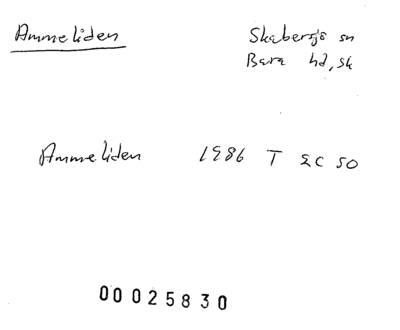 Ammeliden
Skabersjö sn
Bara hd, sk
Ammeliden 1986 T 2C SO
00025830